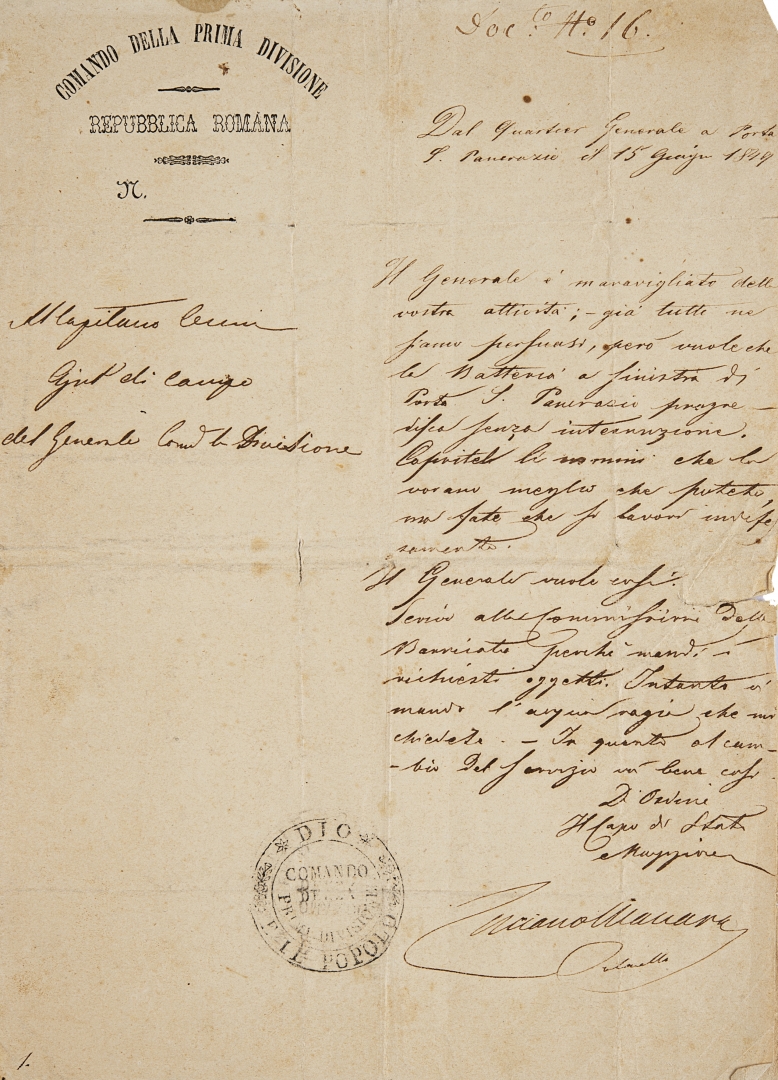 Doc.to No. 16.
COMANDO DELLA PRIMA DIVISIONE
REPUBBLICA ROMANA
N.
Dal Quartier Generale a Porta
S. Pancrazio il 15 Giugn 1849
Al Capitano Cenni
Ajut di Campo
del Generale Comd la Divisione
Il Generale è maravigliato della
vostra attività; - già tutti ne
siamo persuasi, però vuole che
la Batteria a sinistra di
Porta S. Pancrazio progre-
disca senza interruzione.
li uomini che la
vorano meglio che potete,
ma fate che si lavori indefe
samente.
Il Generale vuole così.
Scrivo alla Commissione delle
Barricate perchè mandi i
richiesti oggetti. Intanto vi
mando l'acqua ragia che mi
chiedete. - In quanto al cam-
-bio del servizio va bene così.
D'Ordine
Il Capo di Stato
Maggiore
Luciano Manara
Colonello
DIO E IL POPOLO
COMANDO
DELLA
PRIMA DIVISIONE
1.